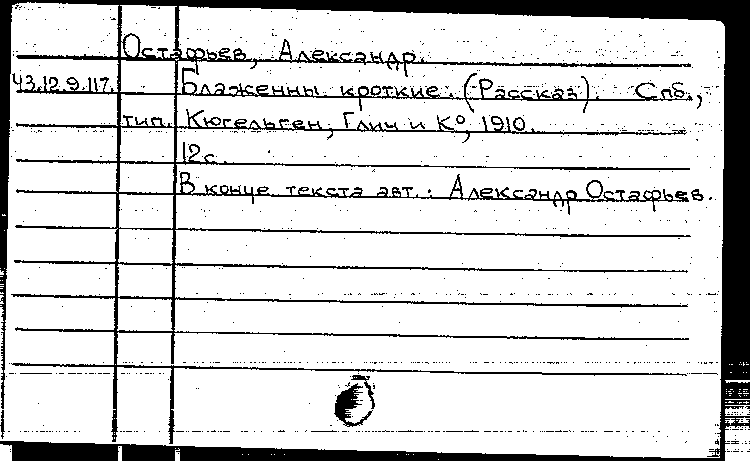 Остафьев, Александр.
43.12.9.117. Блаженны кроткие. (Рассказ). Спб.,
тип. Кюгельген, Глич и К°, 1910.
12с.
В конце текста авт.: Александр Остафьев.